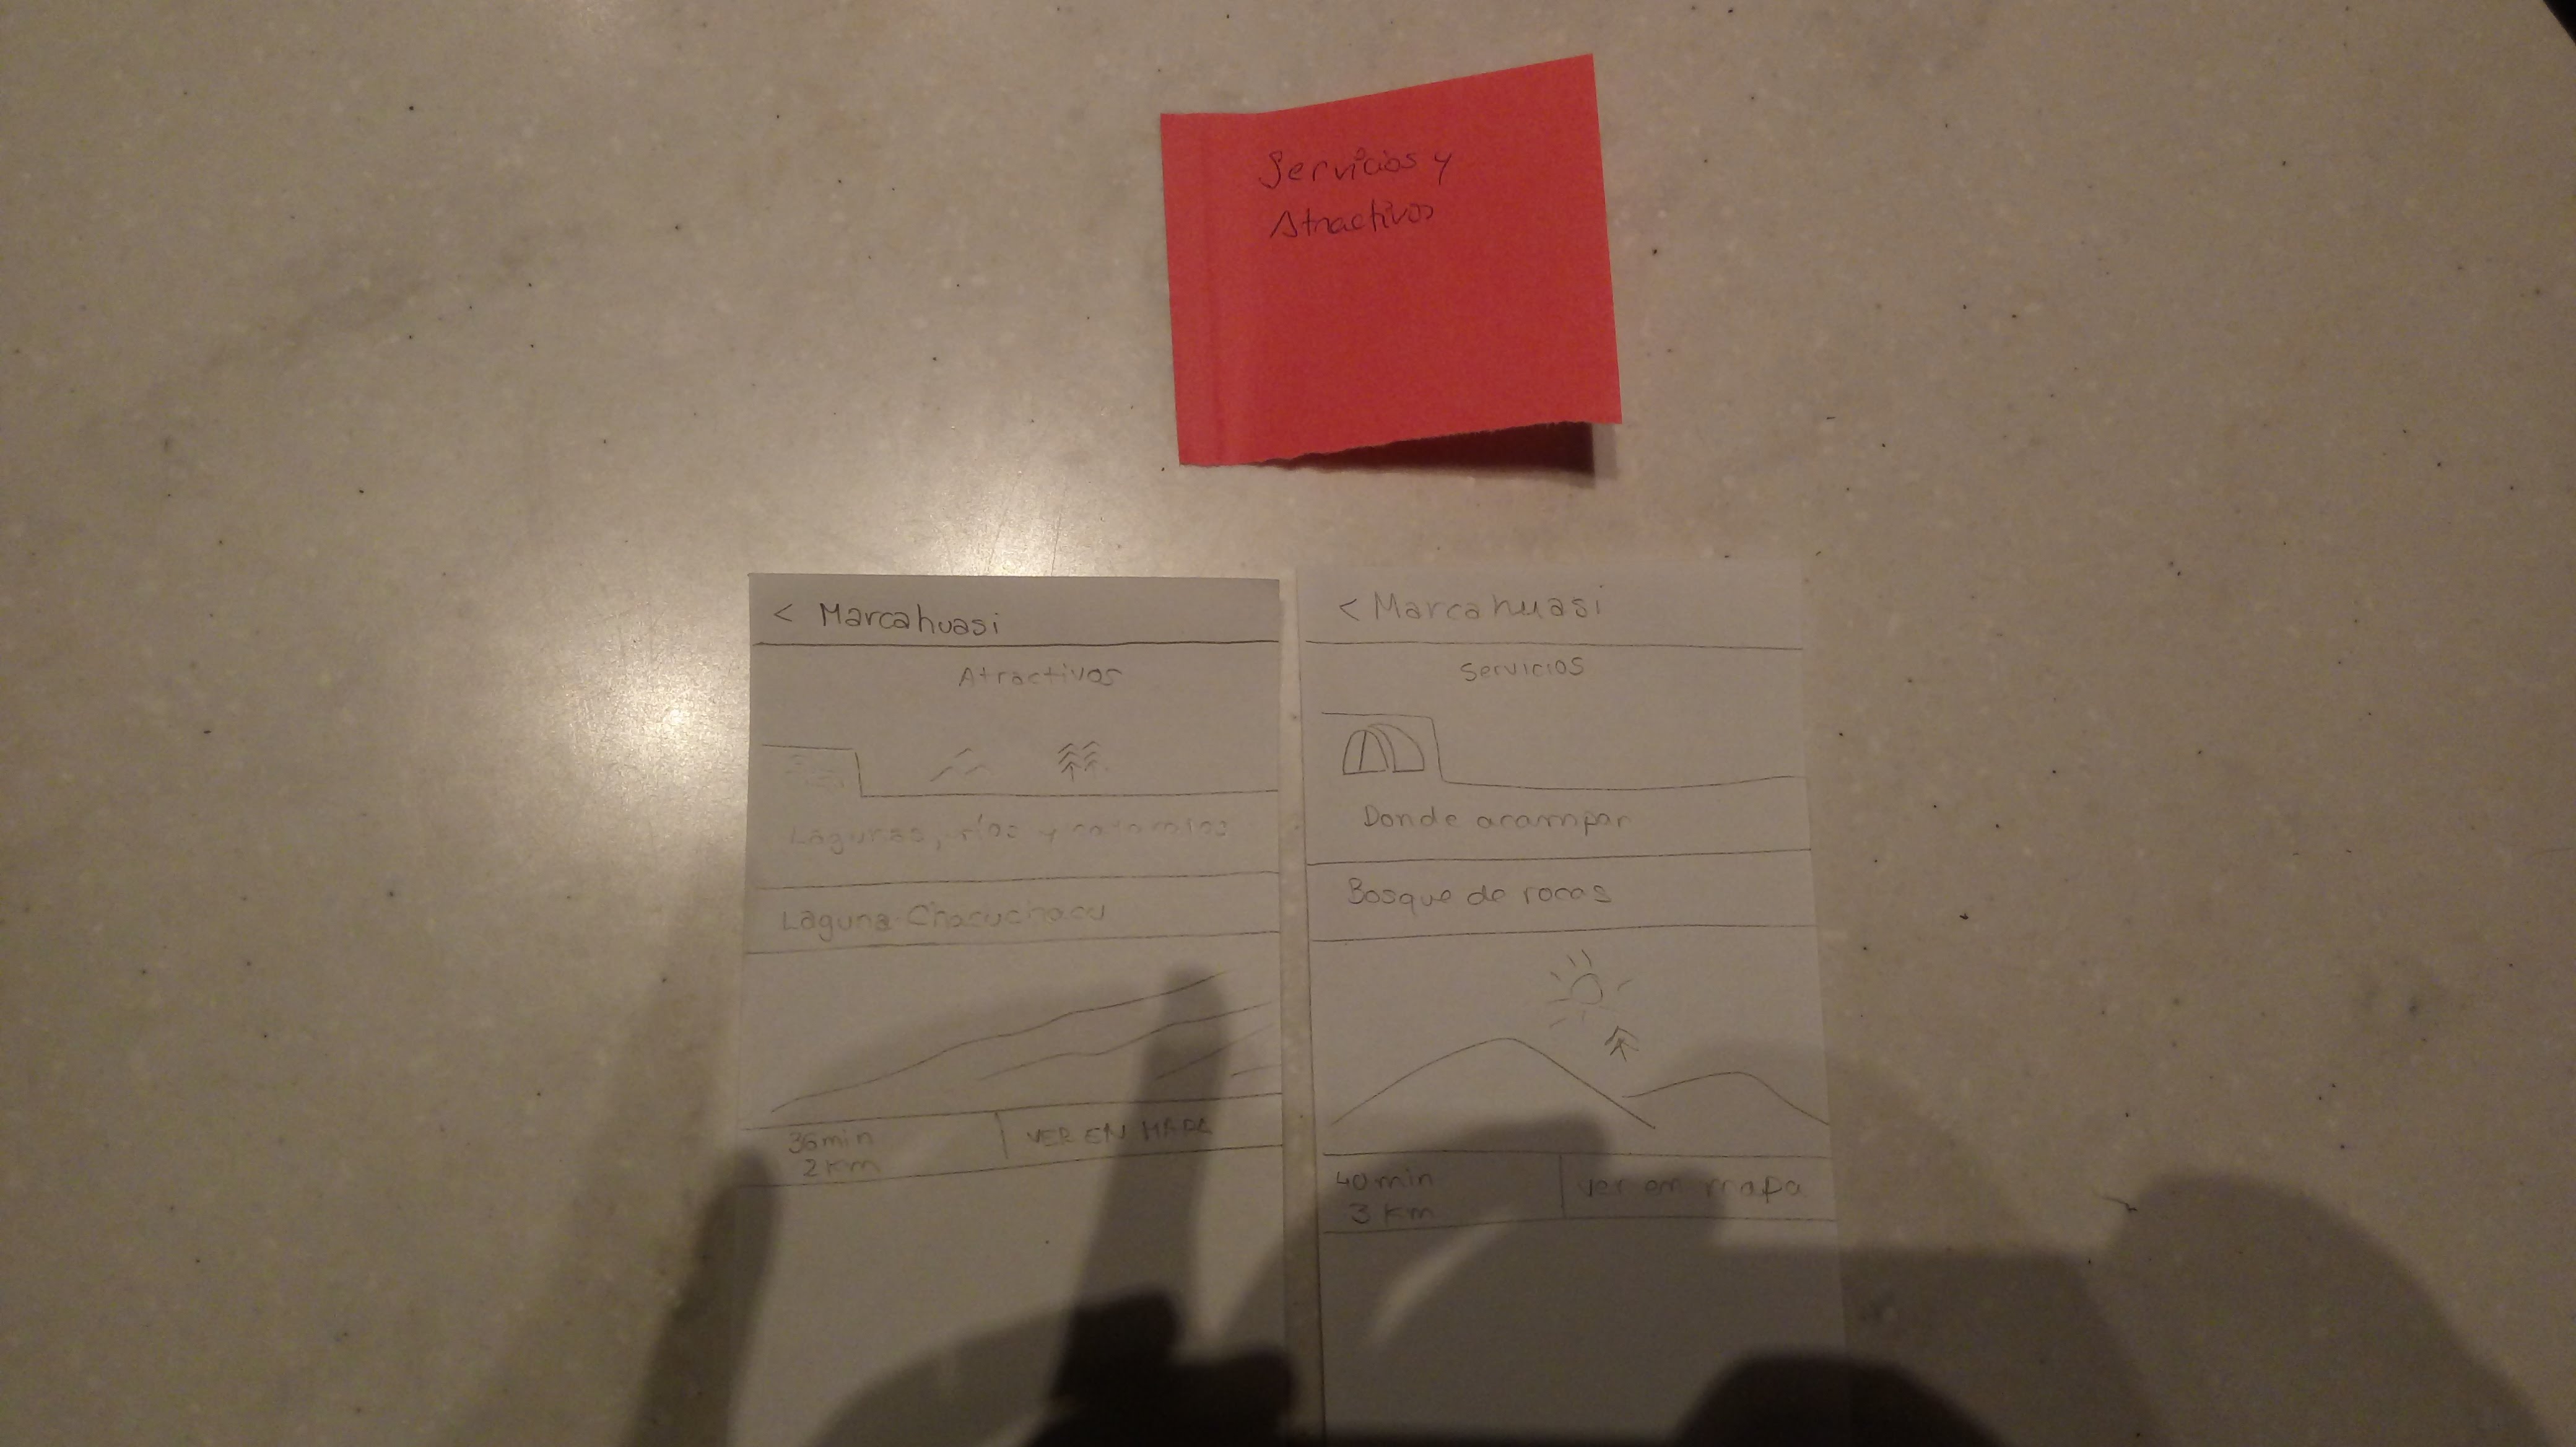 Servicios y
Atractivos
< Marcahuasi
Atractivos
Lagunas, ríos y
Laguna Chacuchacu
36min
2 km
VER EN MAPA
< Marcahuasi
Servicios
Donde acampar
Bosque de rocas
40 min
3 km
Ver en mapa